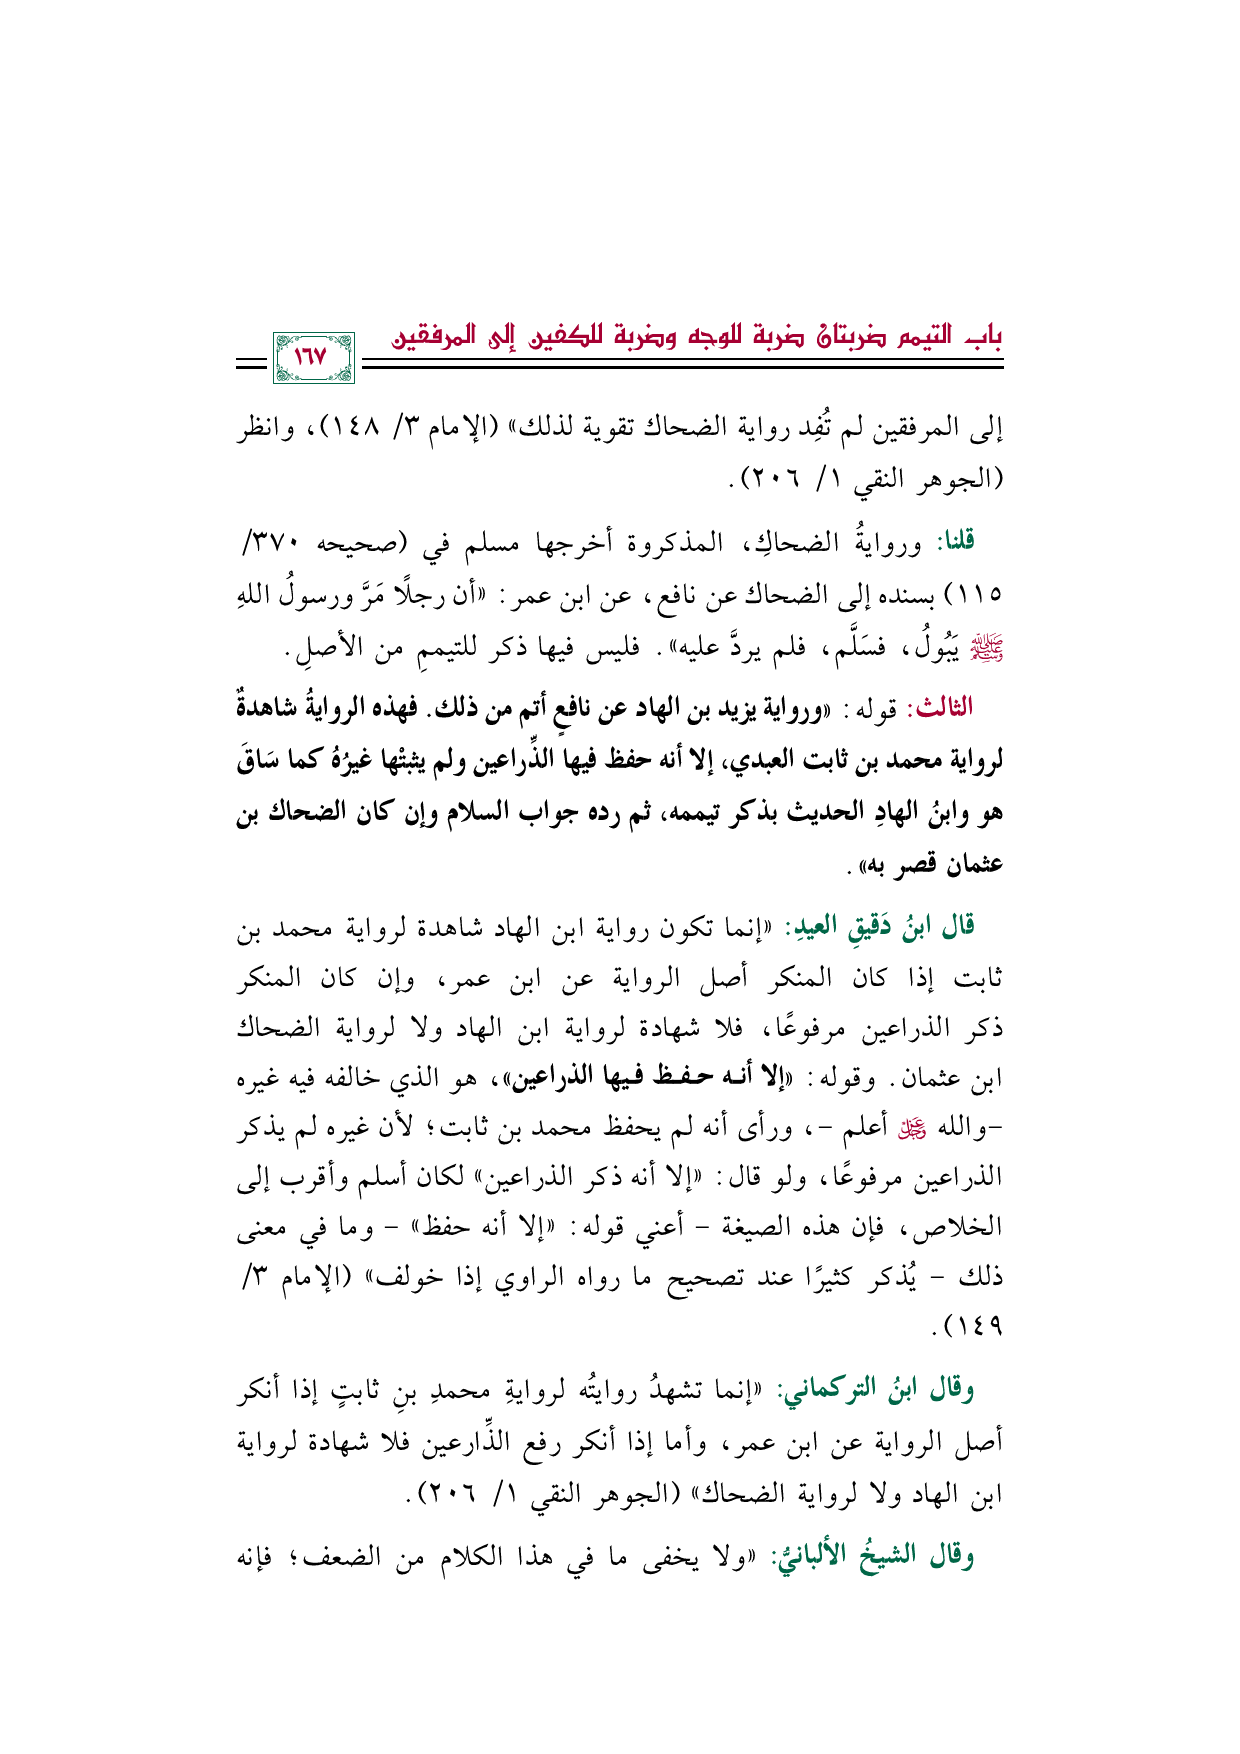 باب التيمم ضربتان ضربة للوجه وضربة للكفين إلى المرفقين
١٦٧
إلى المرفقين لم تُفِد رواية الضحاك تقوية لذلك» (الإمام ٣/ ١٤٨)، وانظر
(الجوهر النقي ١/ ٢٠٦).
قلنا: وروايةُ الضحاكِ، المذكروة أخرجها مسلم في (صحيحه ٣٧٠/
١١٥) بسنده إلى الضحاك عن نافع، عن ابن عمر: «أن رجلًا مَرَّ ورسولُ اللهِ
ﷺ يَبُولُ، فسَلَّم، فلم يردَّ عليه». فليس فيها ذكر للتيممِ من الأصلِ.
الثالث: قوله: «ورواية يزيد بن الهاد عن نافعٍ أتم من ذلك. فهذه الروايةُ شاهدةٌ
لرواية محمد بن ثابت العبدي، إلا أنه حفظ فيها الذِّراعين ولم يثبتْها غيرُهُ كما سَاقَ
هو وابنُ الهادِ الحديث بذكر تيممه، ثم رده جواب السلام وإن كان الضحاك بن
عثمان قصر به».
قال ابنُ دَقيقِ العيدِ: «إنما تكون رواية ابن الهاد شاهدة لرواية محمد بن
ثابت إذا كان المنكر أصل الرواية عن ابن عمر، وإن كان المنكر
ذكر الذراعين مرفوعًا، فلا شهادة لرواية ابن الهاد ولا لرواية الضحاك
ابن عثمان. وقوله: «إلا أنـه حـفـظ فـيها الذراعين»، هو الذي خالفه فيه غيره
-والله عز وجل أعلم -، ورأى أنه لم يحفظ محمد بن ثابت؛ لأن غيره لم يذكر
الذراعين مرفوعًا، ولو قال: «إلا أنه ذكر الذراعين» لكان أسلم وأقرب إلى
الخلاص، فإن هذه الصيغة - أعني قوله: «إلا أنه حفظ» - وما في معنى
ذلك - يُذكر كثيرًا عند تصحيح ما رواه الراوي إذا خولف» (الإمام ٣/
١٤٩).
وقال ابنُ التركماني: «إنما تشهدُ روايتُه لروايةِ محمدِ بنِ ثابتٍ إذا أنكر
أصل الرواية عن ابن عمر، وأما إذا أنكر رفع الذِّارعين فلا شهادة لرواية
ابن الهاد ولا لرواية الضحاك» (الجوهر النقي ١/ ٢٠٦).
وقال الشيخُ الألبانيُّ: «ولا يخفى ما في هذا الكلام من الضعف؛ فإنه